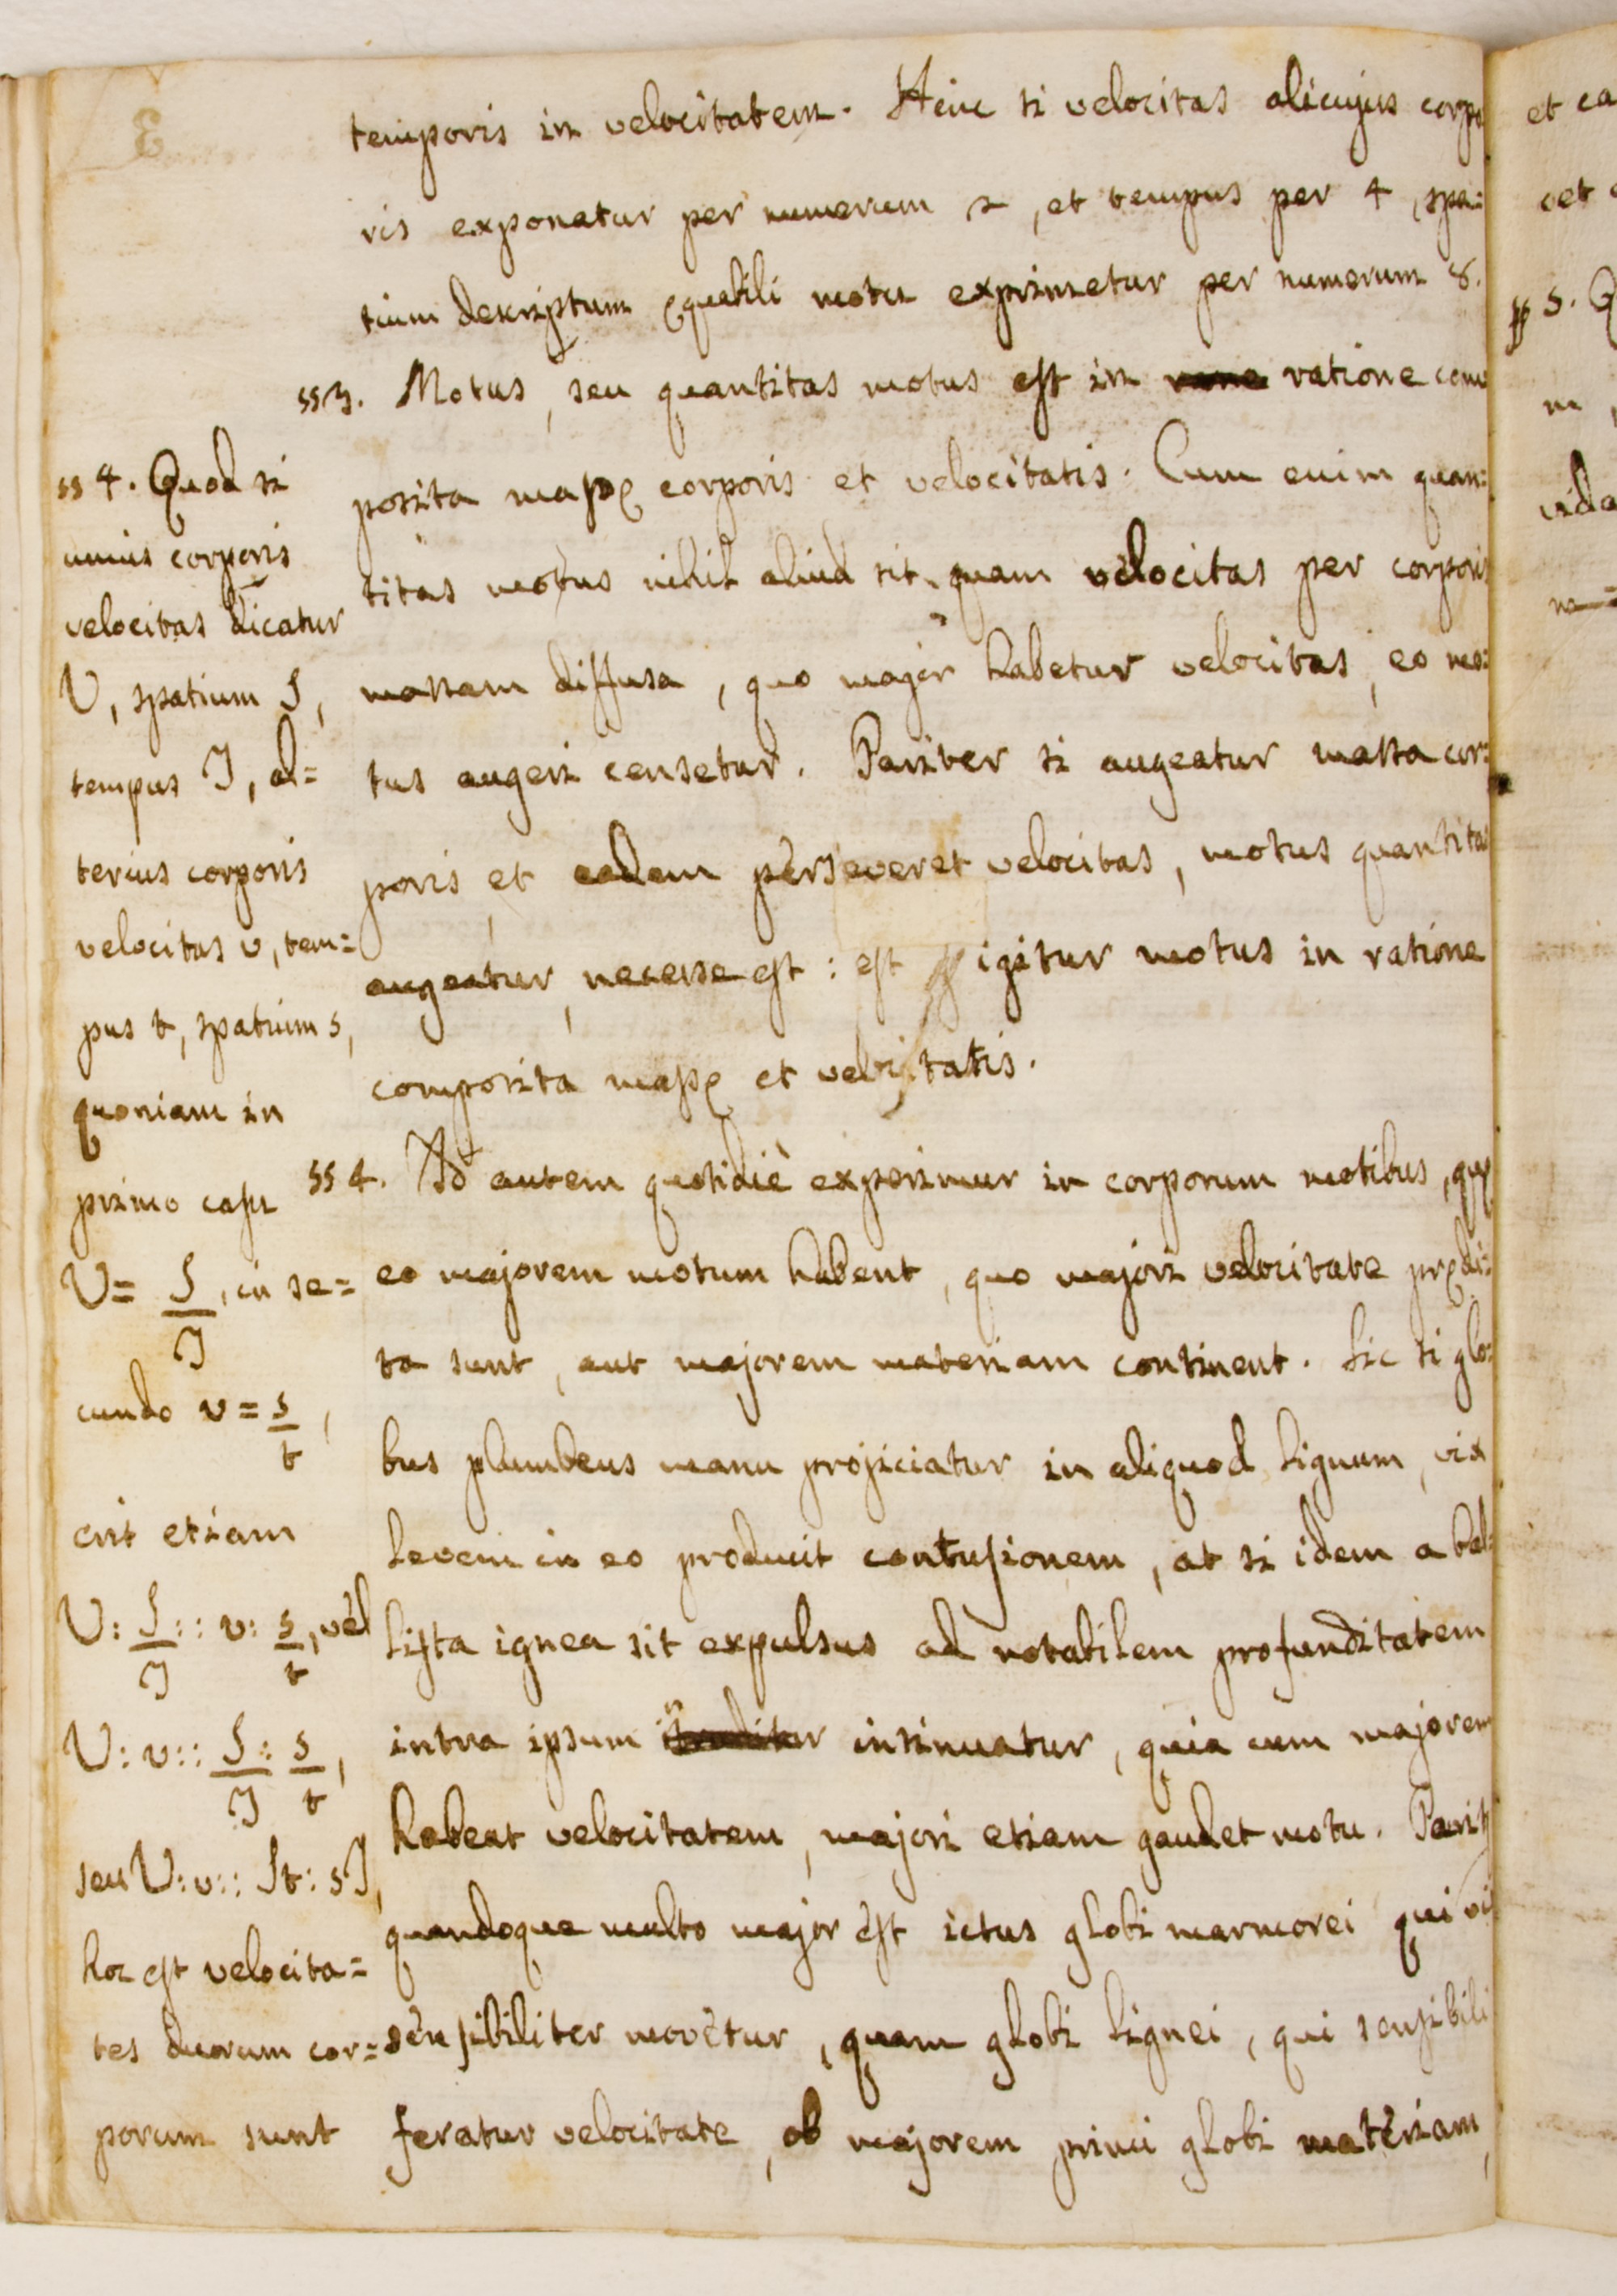 temporis in velocitatem. Hinc si velocitas alicujus corpo
ris exponatur per numerum 2, et tempus per 4, spa:
tium descriptum ęquabili motu exprimetur per numerum 8.
§§ 3. Motus, seu quantitas motus est in ratione com
posita massę corporis et velocitatis. Cum enim quan:
titas motus nihil aliud sit, quam velocitas per corporis
massam diffusa, quo major habetur velocitas, eo mo:
tus augeri censetur. Pariter si augeatur massa cor:
poris, et eadem perseveret velocitas, motus quantitas
augeatur, necesse est: est igitur motus in ratione
composita massę et velocitatis.
§§ 4. Id autem quotidiè experimur in corporum motibus, quę
eo majorem motum habent, quo majori velocitate prędi:
ta sunt, aut majorem materiam continent. Sic si glo:
bus plumbeus manu projiciatur in aliquod lignum, vix
levem in eo producit contusionem, at si idem a bal:
lista ignea sit expulsus ad notabilem profunditatem
intra ipsum insinuatur, quia cum majorem
habeat velocitatem, majori etiam gaudet motu. Parit
quandoque multo major est ictus globi marmorei qui vix
sensibiliter movetur, quam globi lignei, qui sensibili
feratur velocitate, ob majorem primi globi materiam,
§§ 4. Quod si
unius corporis
velocitas dicatur
V, spatium S,
tempus T, al=
terius corporis
velocitas v, tem=
pus t, spatium s,
quoniam in
primo casu
V = S/T, in se=
cundo v = s/t,
erit etiam
V: S/T :: v: s/t, vel
V: v :: S/T : s/t,
seu V: v :: St: sT,
hoc est velocita=
tes duorum cor=
porum sunt
et ca
cet
§§ 5. Q
m
vida